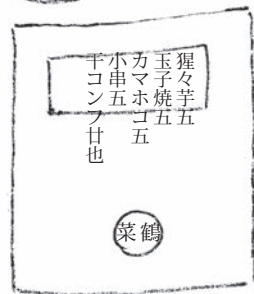 猩々芋五
玉子焼五
カマホコ五
小串五
干コンフ廿也
鶴菜